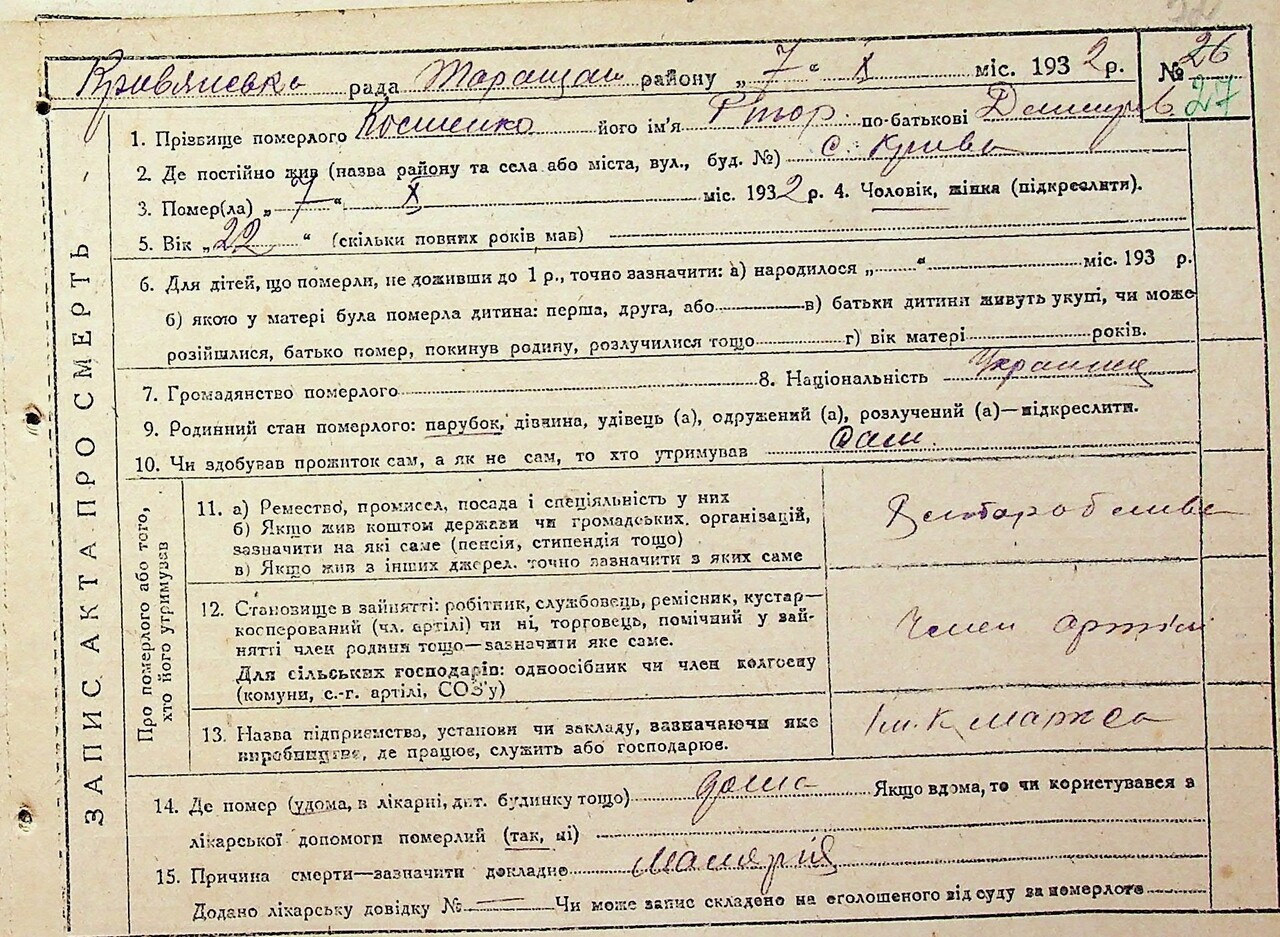 Кривянська рада Таращан району „7“ X міс. 1932 р. № 26
27
ЗАПИС АКТА ПРО СМЕРТЬ
1. Прізвище померлого Костенко його ім'я по-батькові
2. Де постійно жив (назва району та села або міста, вул., буд. №) с. Крива
3. Помер(ла) „7“ X міс. 1932 р. 4. Чоловік, жінка (підкреслити).
5. Вік „22“ (скільки повних років мав)
6. Для дітей, що померли, не доживши до 1 р., точно зазначити: а) народилося „ “ міс. 193 р.
б) якою у матері була померла дитина: перша, друга, або в) батьки дитини живуть укупі, чи може
розійшлися, батько помер, покинув родину, розлучилися тощо г) вік матері років.
7. Громадянство померлого 8. Національність Украинец
9. Родинний стан померлого: парубок, дівчина, удівець (а), одружений (а), розлучений (а)—підкреслити.
10. Чи здобував прожиток сам, а як не сам, то хто утримував сам.
Про померлого або того,
хто його утримував
11. а) Ремество, промисел, посада і спеціяльність у них
б) Якщо жив коштом держави чи громадських організацій,
зазначити на які саме (пенсія, стипендія тощо)
в) Якщо жив з інших джерел. точно зазначити з яких саме
12. Становище в зайнятті: робітник, службовець, ремісник, кустар—
косперований (чл. артілі) чи ні, торговець, помічний у зай-
нятті член родини тощо—зазначити яке саме.
Для сільських господарів: одноосібник чи член колгоспу
(комуни, с.-г. артілі, СОЗ'у)
Член артілі
13. Назва підприємства, установи чи закладу, зазначаючи яке
виробництво, де працює, служить або господарює.
Ім. К Маркса
14. Де помер (удома, в лікарні, дит. будинку тощо) дома Якщо вдома, то чи користувався з
лікарської допомоги померлий (так, ні)
15. Причина смерти—зазначити докладно Малярія
Додано лікарську довідку № — Чи може запис складено на оголошеного від суду за померлого